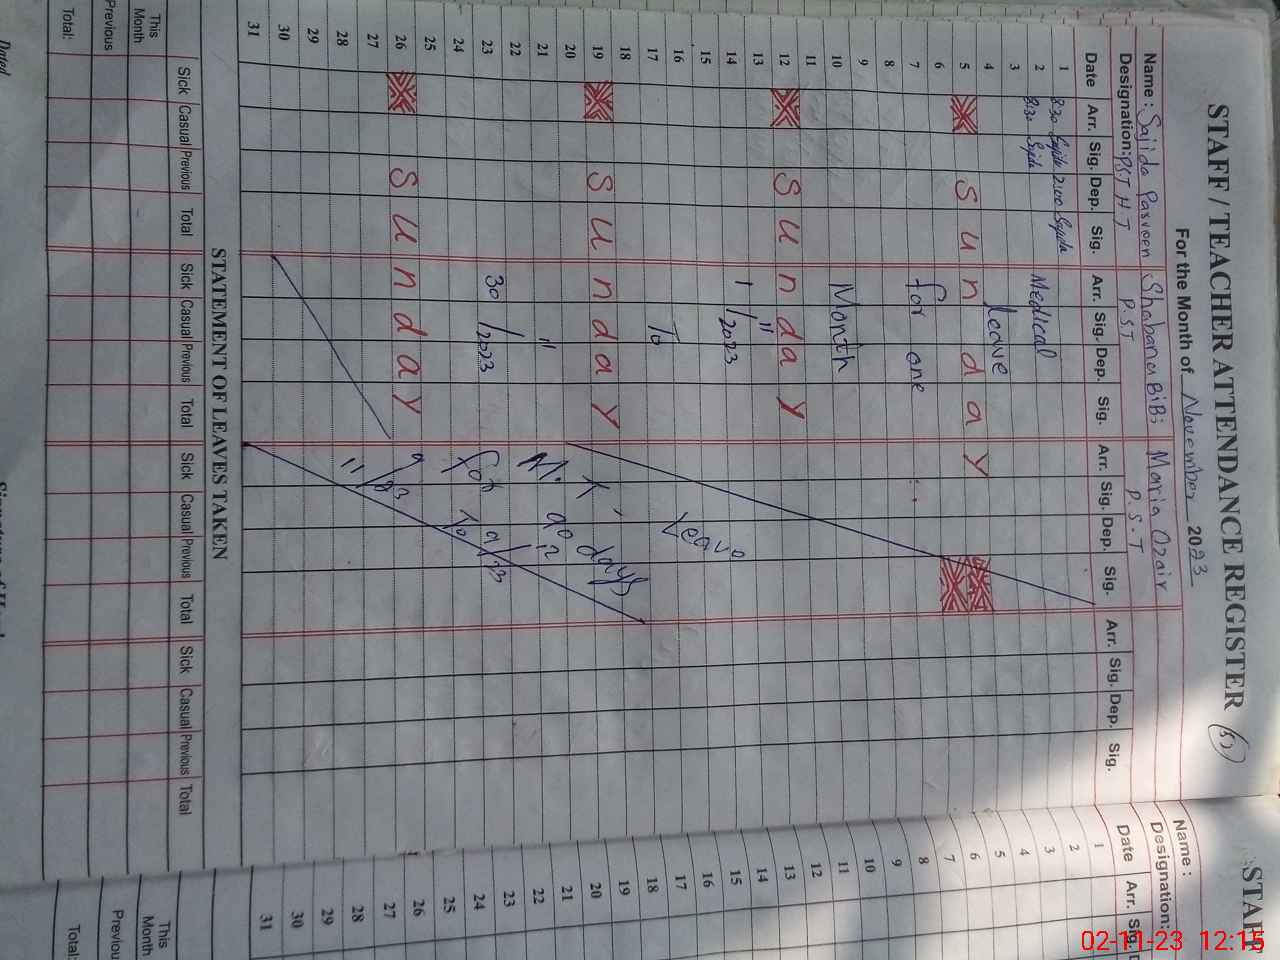 STAFF / TEACHER ATTENDANCE REGISTER (51)
For the Month of November 2023
Name : Sajida Parveen Shabana BiBi Maria Ozair
Designation: PST H T P.ST P.S.T
Date Arr. Sig. Dep. Sig. Arr. Sig. Dep. Sig. Arr. Sig. Dep. Sig. Arr. Sig. Dep. Sig.
1 8:30 Sajida 2:00 Sajida
2 8:30 Sajida Medical
3
4 leave
5 Sunday
6 for one
7
8
9
10 Month
11
12 Sunday
13 "
14 1 / 2023
15 Leave
16
17 To
18
19 Sunday
20 days
21 " M. 90
22
23 30 / 2023
24 for
25
26 Sunday
27
28
29
30
31
STATEMENT OF LEAVES TAKEN
Sick Casual Previous Total Sick Casual Previous Total Sick Casual Previous Total Sick Casual Previous Total
This Month
Previous
Total:
Dated
STAFF
Name :
Designation:
Date Arr. Sig.
1
2
3
4
5
6
7
8
9
10
11
12
13
14
15
16
17
18
19
20
21
22
23
24
25
26
27
28
29
30
31
This Month
Previous
Total:
02-11-23 12:15